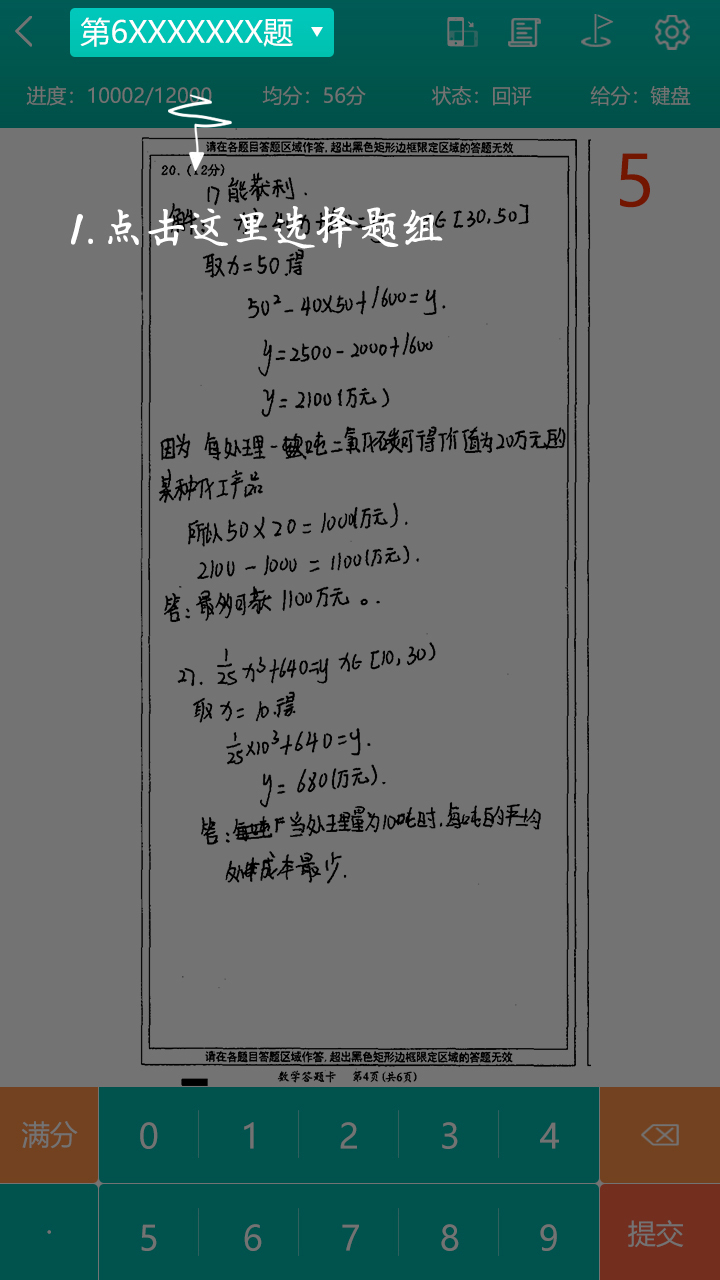 第6XXXXXXX题
进度：10002/12000 均分：56分 状态：回评 给分：键盘
请在各题目答题区域作答, 超出黑色矩形边框限定区域的答题无效
5
20. (12分)
能获利.
1. 点击这里选择题组
∈[30,50]
取x=50得
50²-40×50+1600=y.
y=2500-2000+1600
y=2100(万元)
因为 每处理一吨二氧化碳可得价值为20万元的
某种化工产品
所以50×20=1000(万元).
2100-1000=1100(万元).
答: 最多可获1100万元。
2). 1/25x³+640=y x∈[10,30)
取x=10.得
1/25×10³+640=y.
y=680(万元).
答: 当处理量为100吨时,每吨的平均
成本最少.
请在各题目答题区域作答, 超出黑色矩形边框限定区域的答题无效
数学答题卡 第4页(共6页)
满分 0 1 2 3 4
. 5 6 7 8 9 提交